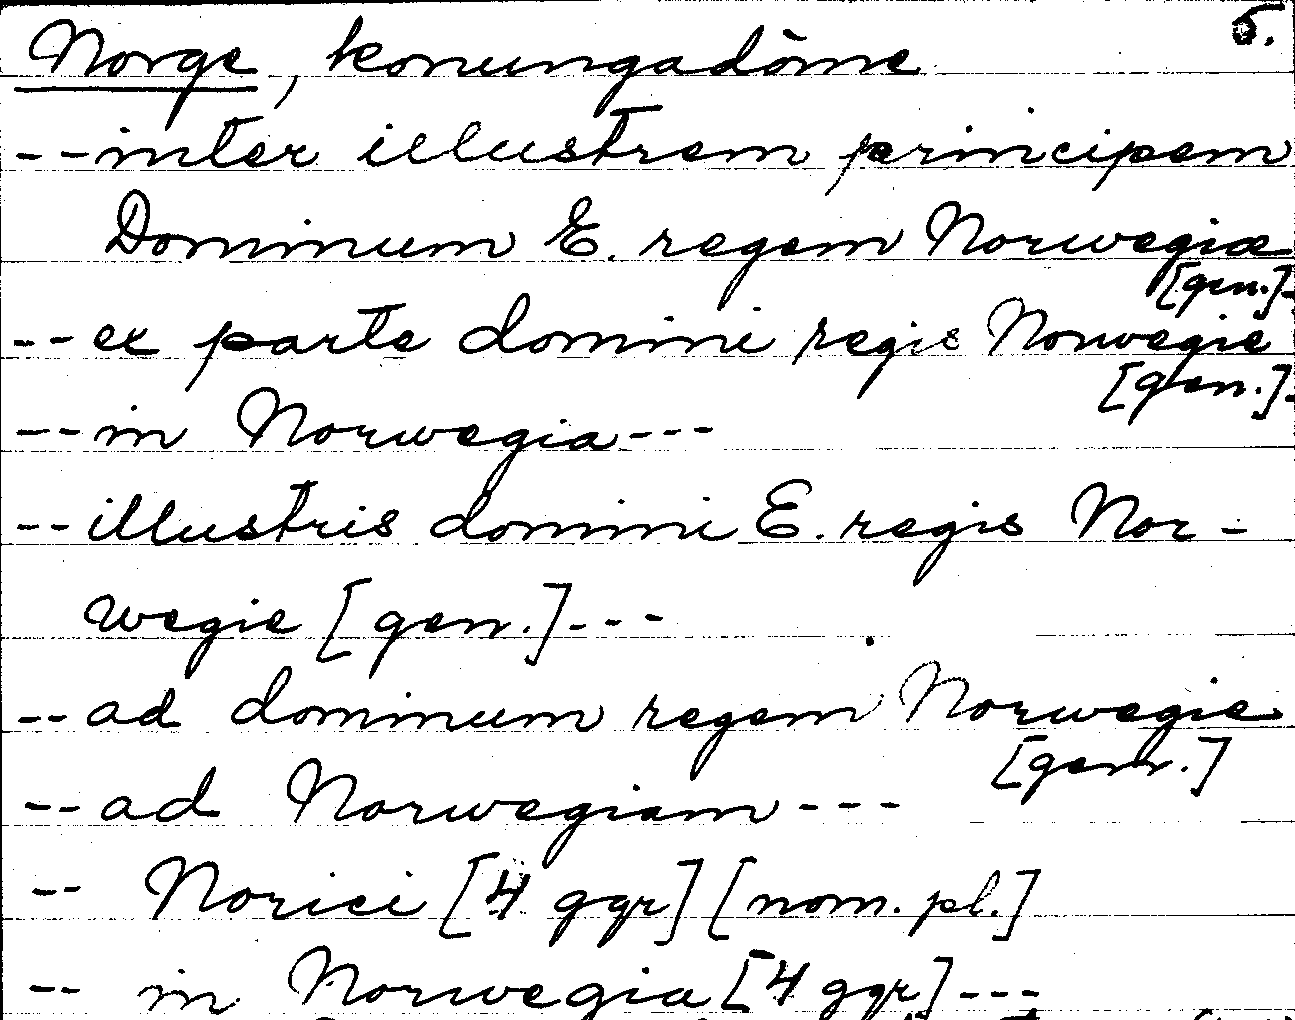 Norge, konungadöme 5.
--inter illustrem principem
Dominum E. regem Norwegiæ
[gen.]-
--ex parte domini regis Norwegie
[gen.]-
--in Norwegia---
--illustris domini E. regis Nor-
wegie [gen.]---
--ad dominum regem Norwegie
[gen.]
--ad Norwegiam---
-- Norici [4 ggr] [nom. pl.]
-- in Norwegia [4 ggr]---